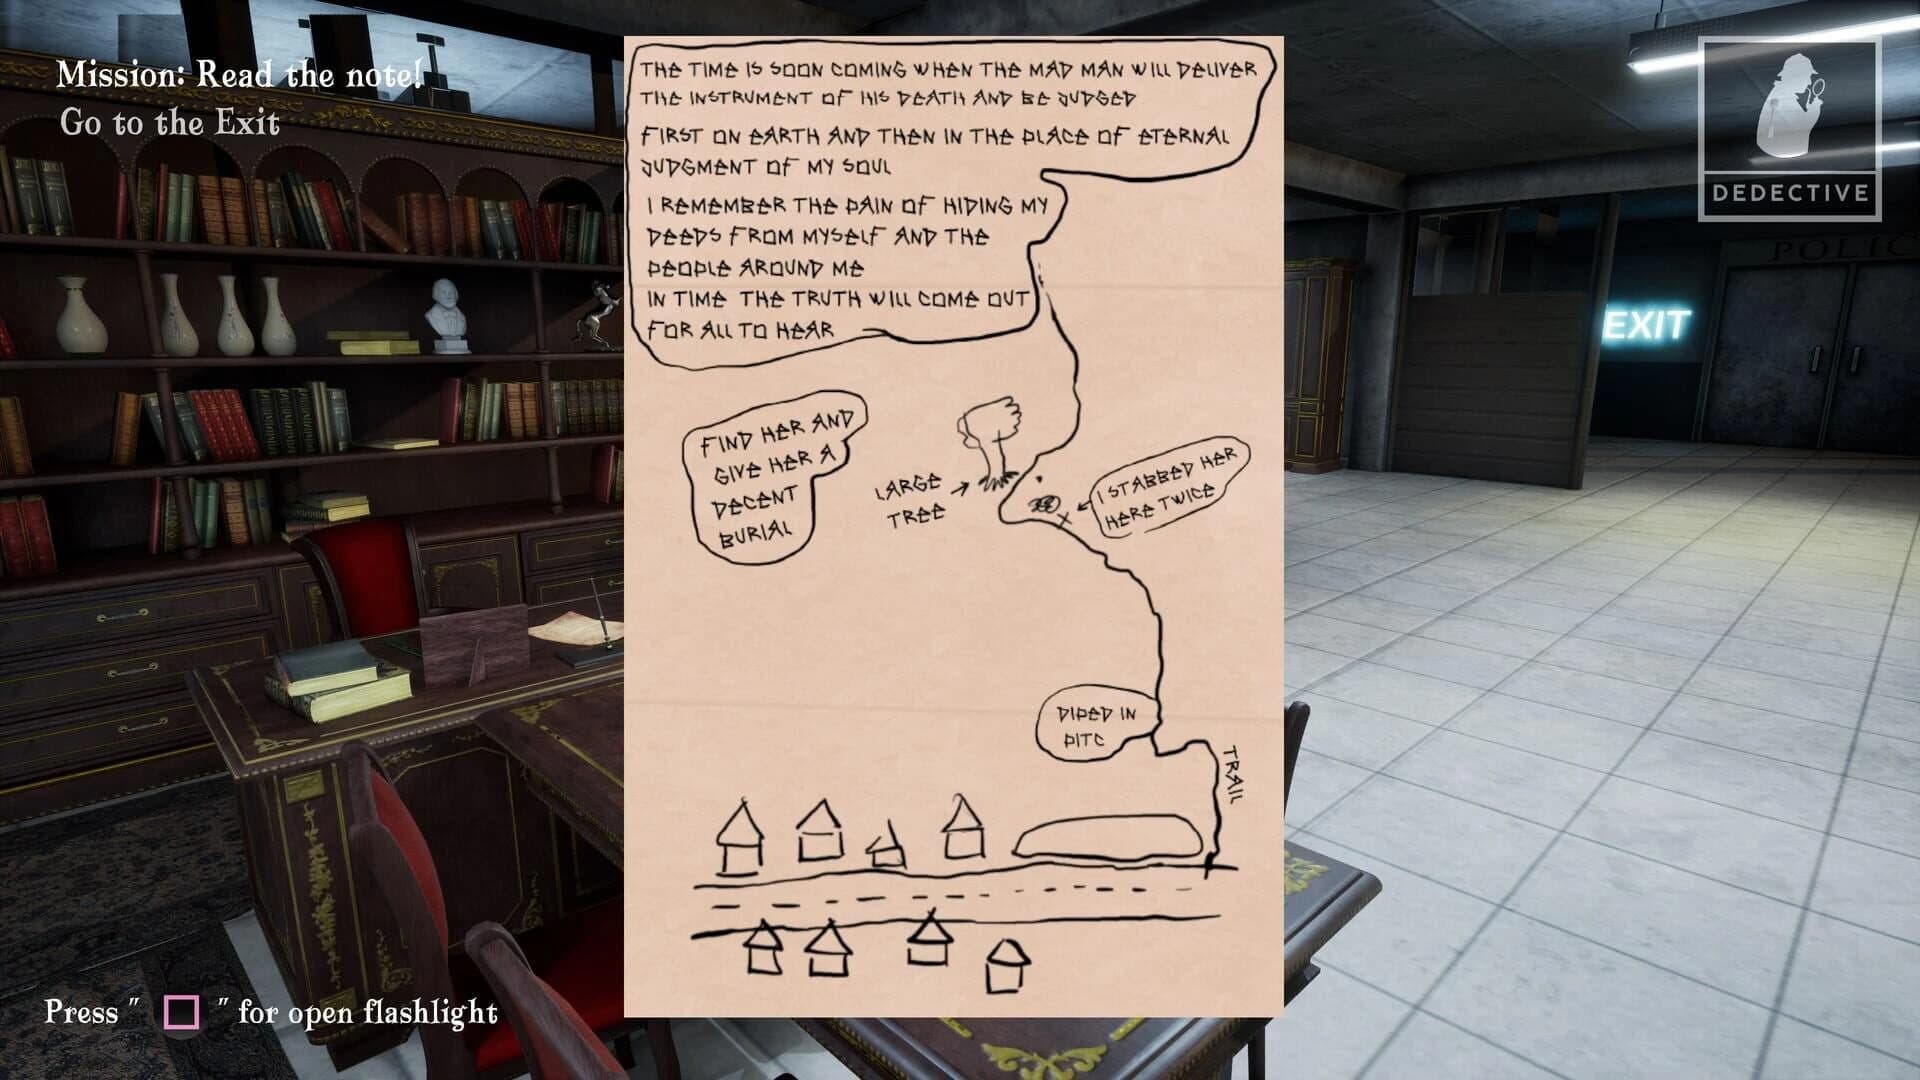 Mission: Read the note!
Go to the Exit
THE TIME IS SOON COMING WHEN THE MAD MAN WILL DELIVER
THE INSTRUMENT OF HIS DEATH AND BE JUDGED
FIRST ON EARTH AND THEN IN THE PLACE OF ETERNAL
JUDGMENT OF MY SOUL
I REMEMBER THE PAIN OF HIDING MY
DEEDS FROM MYSELF AND THE
PEOPLE AROUND ME
IN TIME THE TRUTH WILL COME OUT
FOR ALL TO HEAR
FIND HER AND
GIVE HER A
DECENT
BURIAL
LARGE
TREE
I STABBED HER
HERE TWICE
DIPED IN
PITC
TRAIL
DEDECTIVE
POLIC
EXIT
Press "□" for open flashlight